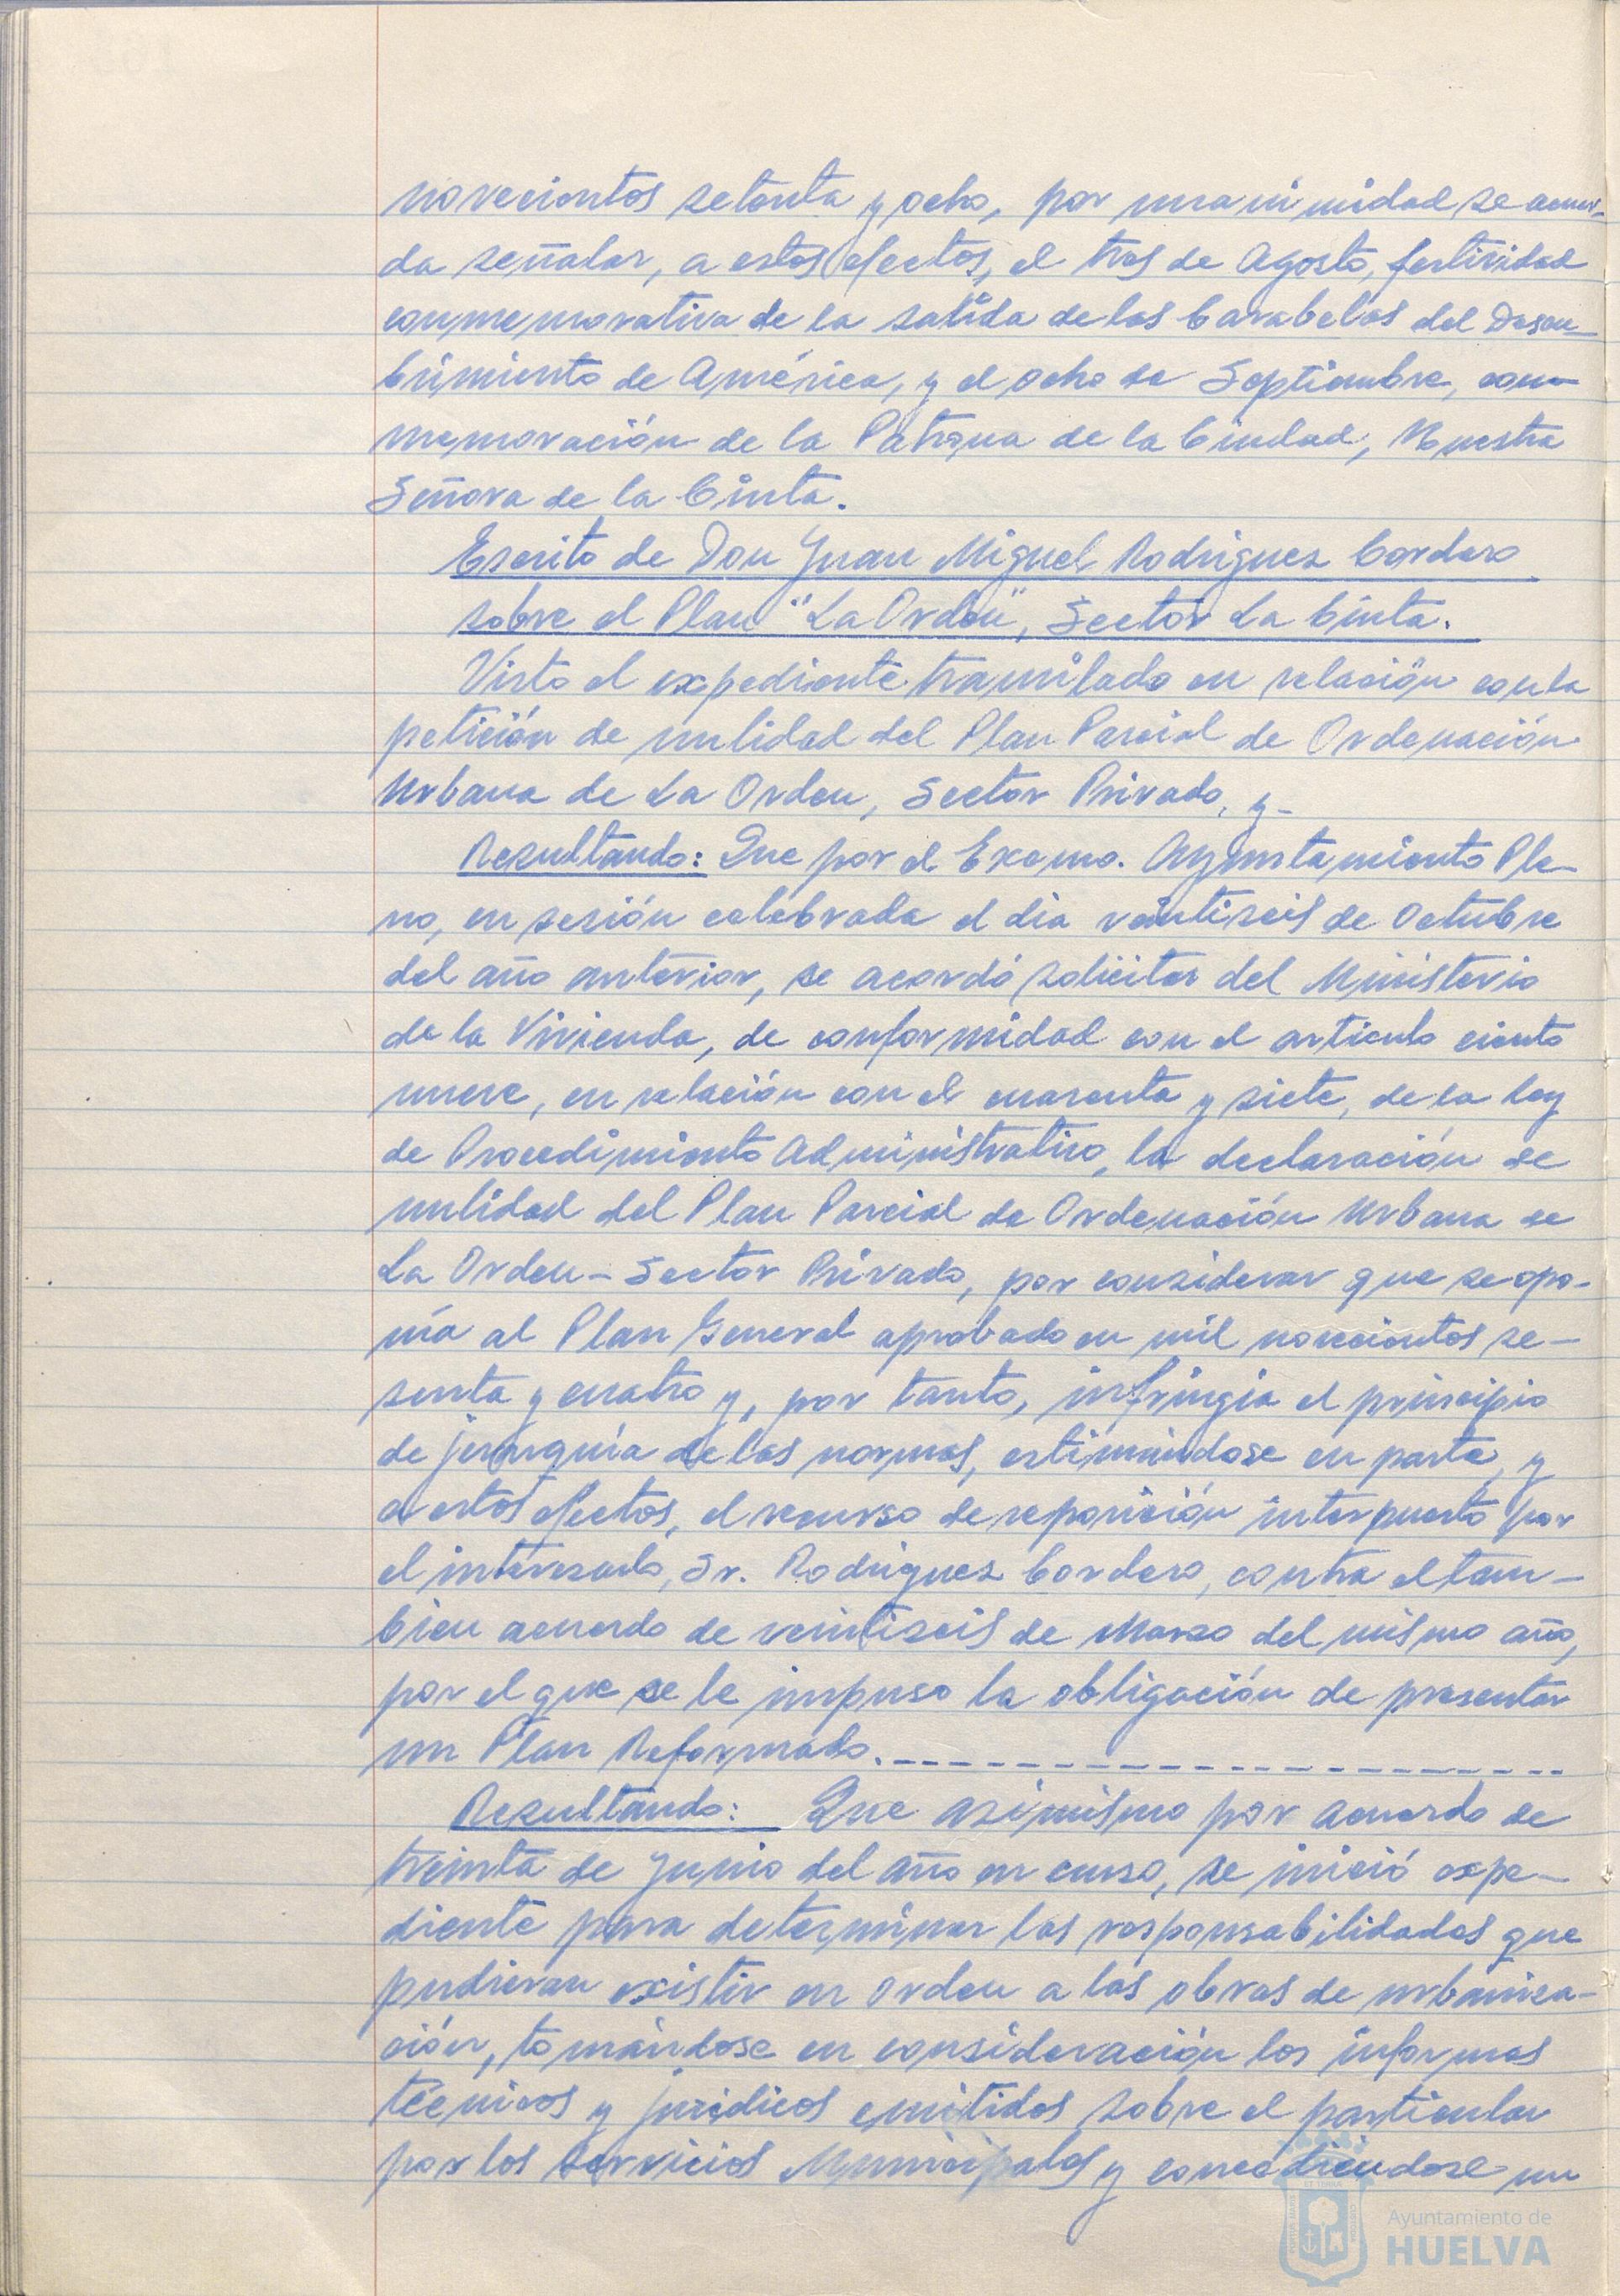 novecientos setenta y ocho, por unanimidad se acuer-
da señalar, a estos efectos, el tres de Agosto, festividad
conmemorativa de la salida de las Carabelas del Descu-
brimiento de América, y el ocho de Septiembre, con-
memoración de la Patrona de la Ciudad, Nuestra
Señora de la Cinta.
Escrito de Don Juan Miguel Rodriguez Cordero
sobre el Plan "La Orden", Sector La Cinta.
Visto el expediente tramitado en relación con la
petición de nulidad del Plan Parcial de Ordenación
Urbana de La Orden, Sector Privado, y-
Resultando: Que por el Excmo. Ayuntamiento Ple-
no, en sesión celebrada el dia veintiseis de Octubre
del año anterior, se acordó solicitar del Ministerio
de la Vivienda, de conformidad con el articulo ciento
nueve, en relación con el cuarenta y siete, de la Ley
de Procedimiento Administrativo, la declaración de
nulidad del Plan Parcial de Ordenación Urbana de
La Orden - Sector Privado, por considerar que se opo-
nía al Plan General aprobado en mil novecientos se-
senta y cuatro y, por tanto, infringia el principio
de jerarquia de las normas, estimándose en parte, y
a estos efectos, el recurso de reposición interpuesto por
el interesado, Sr. Rodriguez Cordero, contra el tam-
bien acuerdo de veintiseis de Marzo del mismo año,
por el que se le impuso la obligación de presentar
un Plan Reformado.
Resultando: Que asimismo por acuerdo de
treinta de Junio del año en curso, se inició expe-
diente para determinar las responsabilidades que
pudieran existir en orden a las obras de urbaniza-
ción, tomándose en consideración los informes
técnicos y juridicos emitidos sobre el particular
por los servicios Municipales y concediendose un
Ayuntamiento de
HUELVA